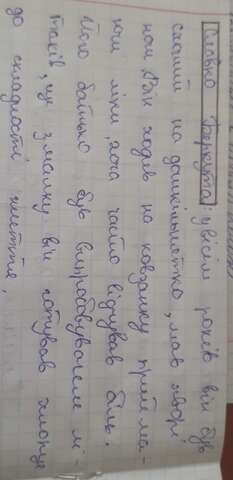 Славко Беркута: у вісім років він був
схожий на дошкільнятко, мав хворі
Він ходив на ковзанку прийма-
ючи ліки, хоча часто відчував біль.
Його батько був випробувачем лі-
таків, змалку він готував хлопця
до складності життя.